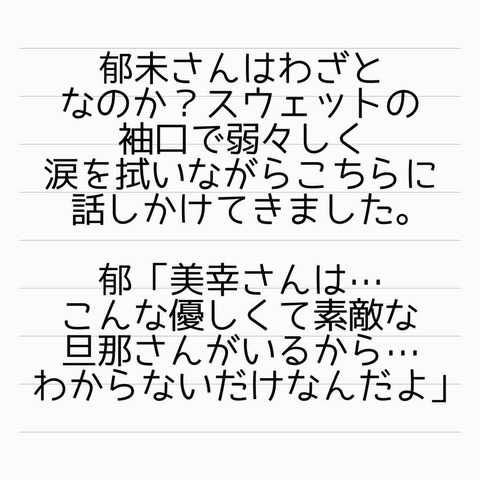 郁未さんはわざと
なのか？スウェットの
袖口で弱々しく
涙を拭いながらこちらに
話しかけてきました。
郁「美幸さんは…
こんな優しくて素敵な
旦那さんがいるから…
わからないだけなんだよ」